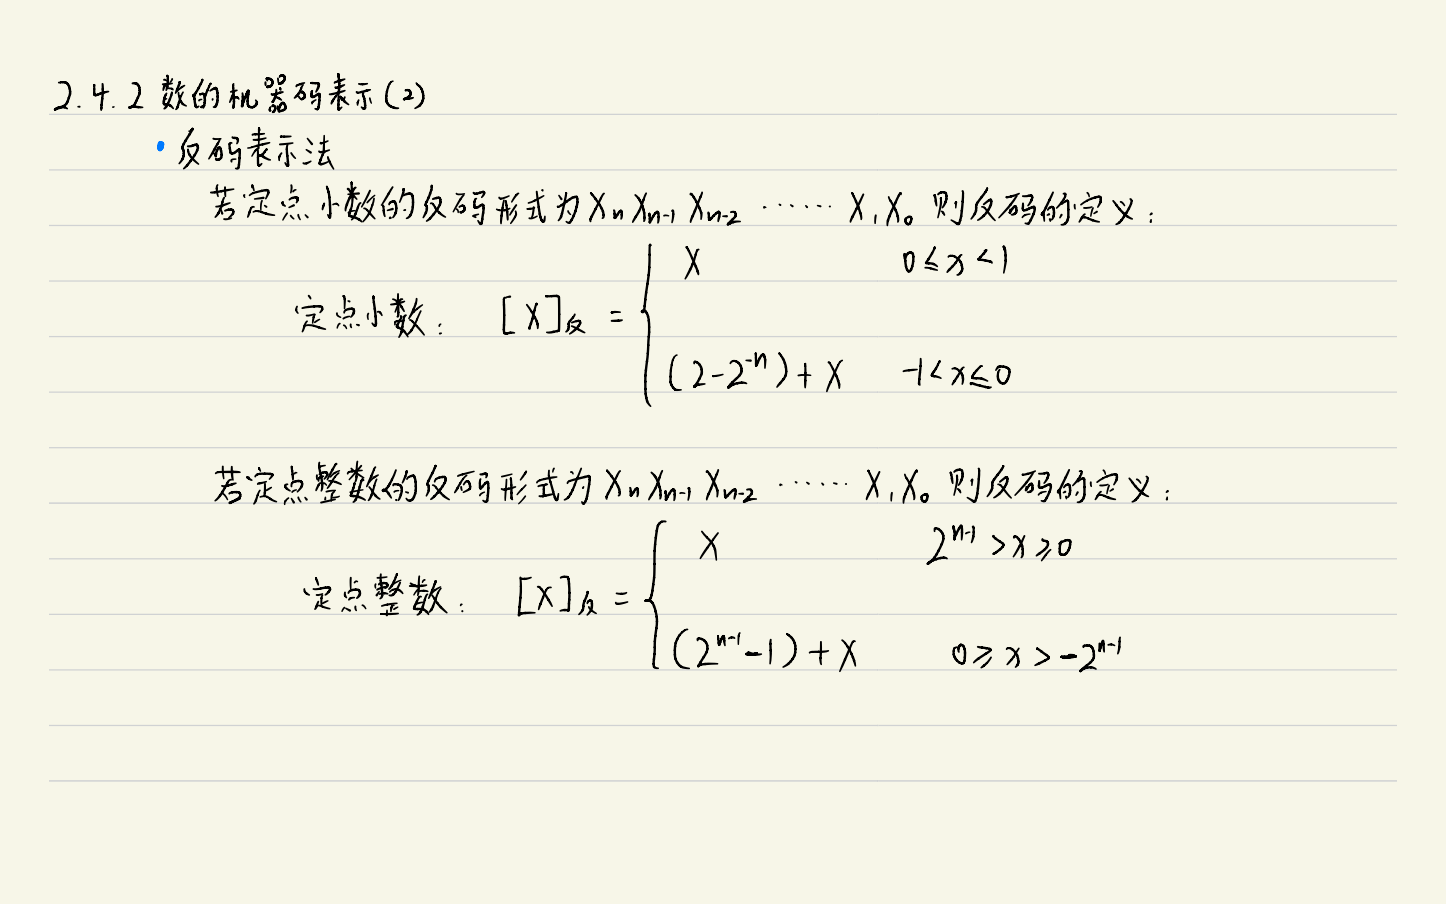 2.4.2 数的机器码表示(2)
• 反码表示法
若定点小数的反码形式为 Xₙ Xₙ₋₁ Xₙ₋₂ ······ X₁ X₀ 则反码的定义：
X 0≤x<1
定点小数： [X]反 = {
(2-2⁻ⁿ)+X -1<x≤0
若定点整数的反码形式为 Xₙ Xₙ₋₁ Xₙ₋₂ ······ X₁ X₀ 则反码的定义：
X 2ⁿ⁻¹>x≥0
定点整数： [X]反 = {
(2ⁿ⁻¹-1)+X 0≥x>-2ⁿ⁻¹